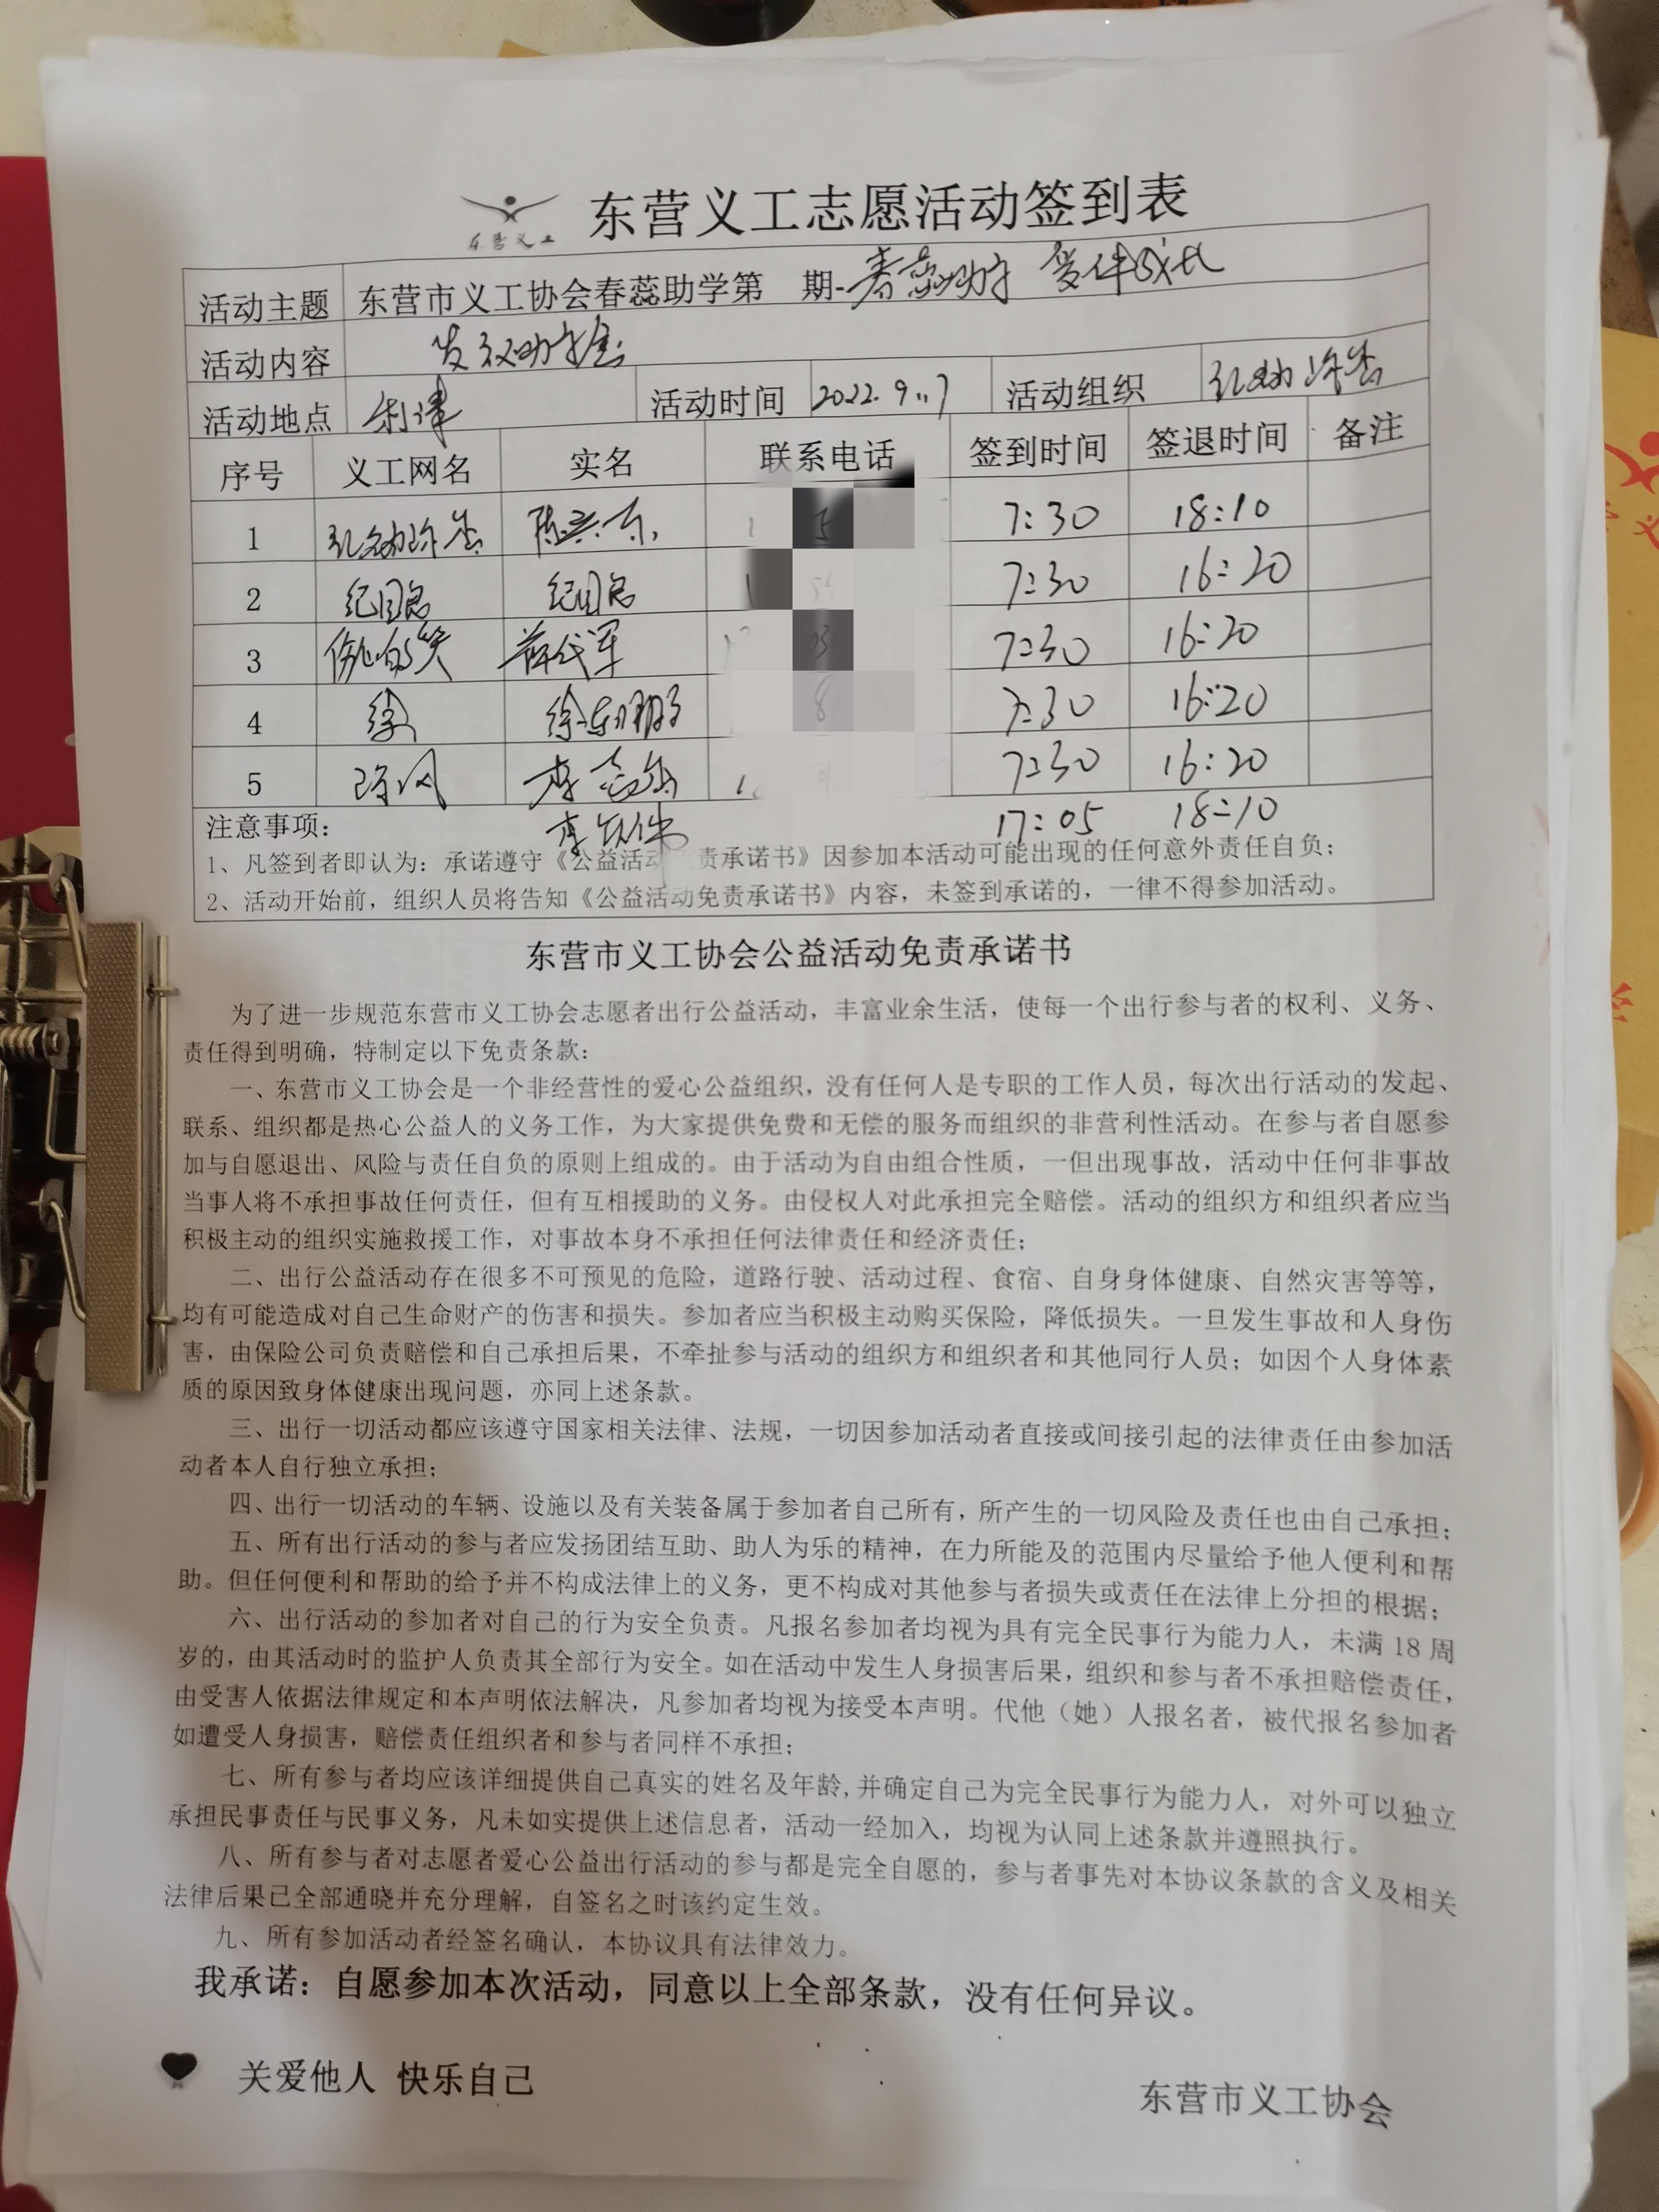 东营义工志愿活动签到表
东营义工
活动主题 东营市义工协会春蕊助学第 期-春蕊助学 爱伴成长
活动内容 发放助学金
活动地点 利津 活动时间 2022.9.17 活动组织
序号 义工网名 实名 联系电话 签到时间 签退时间 备注
1 陈兴东 7:30 18:10
2 纪国总 纪国总 7:30 16:20
3 7:30 16:20
4 徐 徐 7:30 16:20
5 李志 7:30 16:20
李 17:05 18:10
注意事项:
1、凡签到者即认为:承诺遵守《公益活动 责承诺书》因参加本活动可能出现的任何意外责任自负;
2、活动开始前,组织人员将告知《公益活动免责承诺书》内容,未签到承诺的,一律不得参加活动。
东营市义工协会公益活动免责承诺书
为了进一步规范东营市义工协会志愿者出行公益活动,丰富业余生活,使每一个出行参与者的权利、义务、
责任得到明确,特制定以下免责条款:
一、东营市义工协会是一个非经营性的爱心公益组织,没有任何人是专职的工作人员,每次出行活动的发起、
联系、组织都是热心公益人的义务工作,为大家提供免费和无偿的服务而组织的非营利性活动。在参与者自愿参
加与自愿退出、风险与责任自负的原则上组成的。由于活动为自由组合性质,一但出现事故,活动中任何非事故
当事人将不承担事故任何责任,但有互相援助的义务。由侵权人对此承担完全赔偿。活动的组织方和组织者应当
积极主动的组织实施救援工作,对事故本身不承担任何法律责任和经济责任;
二、出行公益活动存在很多不可预见的危险,道路行驶、活动过程、食宿、自身身体健康、自然灾害等等,
均有可能造成对自己生命财产的伤害和损失。参加者应当积极主动购买保险,降低损失。一旦发生事故和人身伤
害,由保险公司负责赔偿和自己承担后果,不牵扯参与活动的组织方和组织者和其他同行人员;如因个人身体素
质的原因致身体健康出现问题,亦同上述条款。
三、出行一切活动都应该遵守国家相关法律、法规,一切因参加活动者直接或间接引起的法律责任由参加活
动者本人自行独立承担;
四、出行一切活动的车辆、设施以及有关装备属于参加者自己所有,所产生的一切风险及责任也由自己承担;
五、所有出行活动的参与者应发扬团结互助、助人为乐的精神,在力所能及的范围内尽量给予他人便利和帮
助。但任何便利和帮助的给予并不构成法律上的义务,更不构成对其他参与者损失或责任在法律上分担的根据;
六、出行活动的参加者对自己的行为安全负责。凡报名参加者均视为具有完全民事行为能力人,未满18周
岁的,由其活动时的监护人负责其全部行为安全。如在活动中发生人身损害后果,组织和参与者不承担赔偿责任,
由受害人依据法律规定和本声明依法解决,凡参加者均视为接受本声明。代他(她)人报名者,被代报名参加者
如遭受人身损害,赔偿责任组织者和参与者同样不承担;
七、所有参与者均应该详细提供自己真实的姓名及年龄,并确定自己为完全民事行为能力人,对外可以独立
承担民事责任与民事义务,凡未如实提供上述信息者,活动一经加入,均视为认同上述条款并遵照执行。
八、所有参与者对志愿者爱心公益出行活动的参与都是完全自愿的,参与者事先对本协议条款的含义及相关
法律后果已全部通晓并充分理解,自签名之时该约定生效。
九、所有参加活动者经签名确认,本协议具有法律效力。
我承诺:自愿参加本次活动,同意以上全部条款,没有任何异议。
关爱他人 快乐自己
东营市义工协会